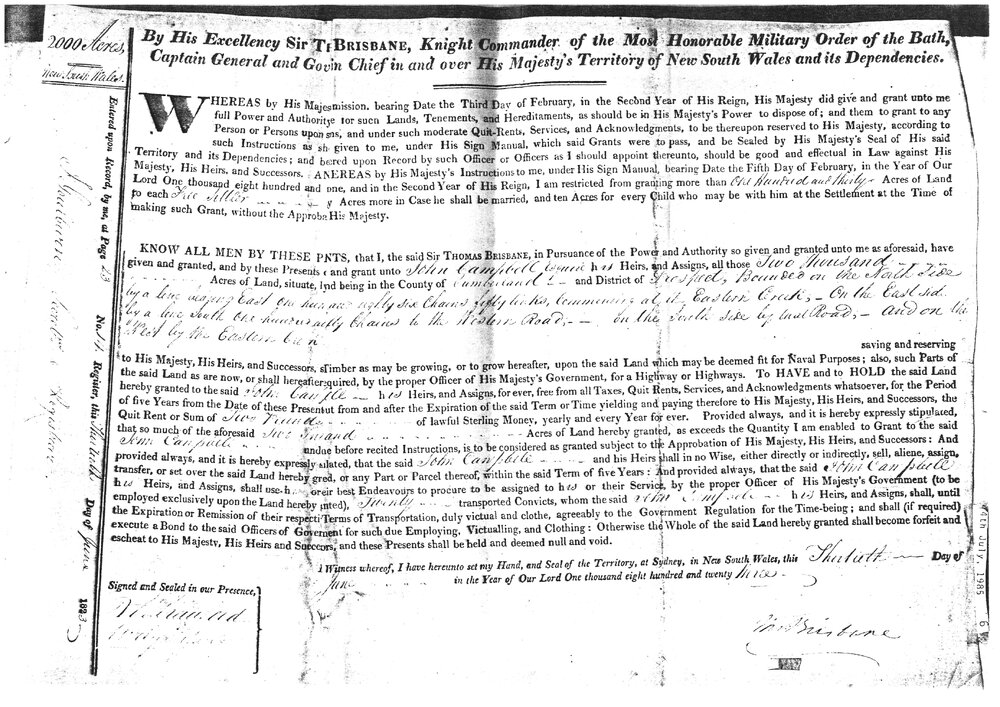 2000 Acres,
New South Wales.
By His Excellency Sir T BRISBANE, Knight Commander of the Most Honorable Military Order of the Bath,
Captain General and Gov in Chief in and over His Majesty's Territory of New South Wales and its Dependencies.
WHEREAS by His Majes mission, bearing Date the Third Day of February, in the Second Year of His Reign, His Majesty did give and grant unto me
full Power and Authority for such Lands, Tenements, and Hereditaments, as should be in His Majesty's Power to dispose of; and them to grant to any
Person or Persons upon s, and under such moderate Quit-Rents, Services, and Acknowledgments, to be thereupon reserved to His Majesty, according to
such Instructions as sh given to me, under His Sign Manual, which said Grants were to pass, and be Sealed by His Majesty's Seal of His said
Territory and its Dependencies; and be red upon Record by such Officer or Officers as I should appoint thereunto, should be good and effectual in Law against His
Majesty, His Heirs, and Successors. AN EREAS by His Majesty's Instructions to me, under His Sign Manual, bearing Date the Fifth Day of February, in the Year of Our
Lord One thousand eight hundred and one, and in the Second Year of His Reign, I am restricted from granting more than One Hundred and thirty Acres of Land
to each Free Settler y Acres more in Case he shall be married, and ten Acres for every Child who may be with him at the Settlement at the Time of
making such Grant, without the Approba His Majesty.
KNOW ALL MEN BY THESE P NTS, that I, the said Sir THOMAS BRISBANE, in Pursuance of the Power and Authority so given and granted unto me as aforesaid, have
given and granted, and by these Presents e and grant unto John Campbell Esquire his Heirs, and Assigns, all those Two Thousand
Acres of Land, situate, lyd being in the County of Cumberland and District of Prospect, Bounded on the North Side
by a line bearing East one hun and eighty six Chains fifty links, Commencing at Eastern Creek, – On the East side
by a line South One hundred Chains to the Western Road, – on the South side by that Road, – and on the
West by the Eastern Cre
saving and reserving
to His Majesty, His Heirs, and Successors, s Timber as may be growing, or to grow hereafter, upon the said Land which may be deemed fit for Naval Purposes; also, such Parts of
the said Land as are now, or shall hereafter quired, by the proper Officer of His Majesty's Government, for a Highway or Highways. To HAVE and to HOLD the said Land
hereby granted to the said John Campbe his Heirs, and Assigns, for ever, free from all Taxes, Quit Rents, Services, and Acknowledgments whatsoever, for the Period
of five Years from the Date of these Present ut from and after the Expiration of the said Term or Time yielding and paying therefore to His Majesty, His Heirs, and Successors, the
Quit Rent or Sum of Two of lawful Sterling Money, yearly and every Year for ever. Provided always, and it is hereby expressly stipulated,
that so much of the aforesaid Two Acres of Land hereby granted, as exceeds the Quantity I am enabled to Grant to the said
John Campbell undue before recited Instructions, is to be considered as granted subject to the Approbation of His Majesty, His Heirs, and Successors: And
provided always, and it is hereby expressly lated, that the said John Campbell and his Heirs shall in no Wise, either directly or indirectly, sell, aliene, assign,
transfer, or set over the said Land hereby gred, or any Part or Parcel thereof, within the said Term of five Years: And provided always, that the said John Campbell
his Heirs, and Assigns, shall use his or eir best Endeavours to procure to be assigned to his or their Service, by the proper Officer of His Majesty's Government (to be
employed exclusively upon the Land hereby nted), Twenty transported Convicts, whom the said John Campbell his Heirs, and Assigns, shall, until
the Expiration or Remission of their respecti Terms of Transportation, duly victual and clothe, agreeably to the Government Regulation for the Time-being; and shall (if required)
execute a Bond to the said Officers of Govement for such due Employing, Victualling, and Clothing: Otherwise the Whole of the said Land hereby granted shall become forfeit and
escheat to His Majesty, His Heirs and Succesrs, and these Presents shall be held and deemed null and void.
Witness whereof, I have hereunto set my Hand, and Seal of the Territory, at Sydney, in New South Wales, this Thirtieth Day of
June in the Year of Our Lord One thousand eight hundred and twenty three
Signed and Sealed in our Presence,
Thos Brisbane
Entered upon Record, by me, at Page 23 No. Register, this Thirtieth Day of June 1823
Registrar
July, 1985